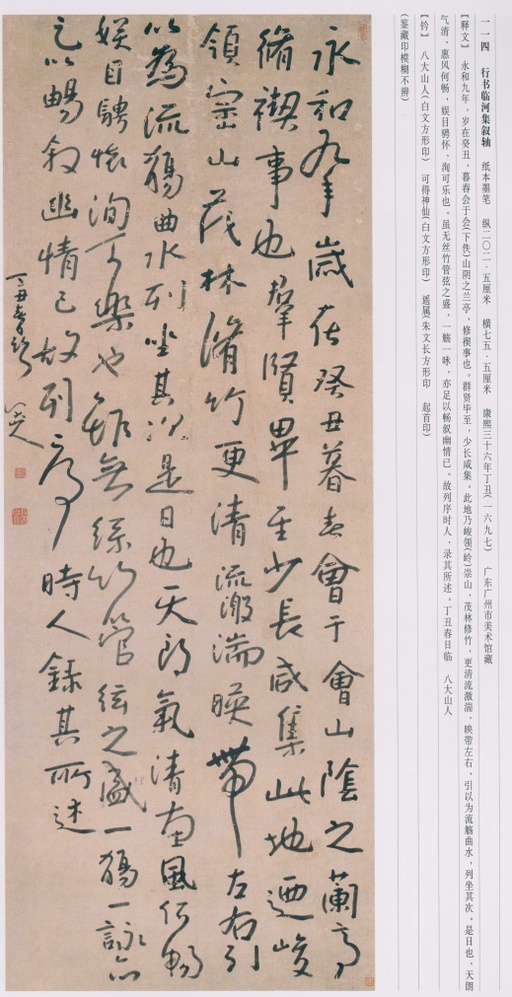 一一四　行书临河集叙轴　纸本墨笔　纵二〇二·五厘米　横七五·五厘米　康熙三十六年丁丑(一六九七)　广东广州市美术馆藏
【释文】　永和九年，岁在癸丑，暮春会于会(下佚)山阴之兰亭，修禊事也。群贤毕至，少长咸集。此地乃峻领(岭)崇山，茂林修竹，更清流激湍，映带左右，引以为流觞曲水，列坐其次。是日也，天朗
气清，惠风何畅，娱目骋怀，洵可乐也。虽无丝竹管弦之盛，一觞一咏，亦足以畅叙幽情已。故列序时人，录其所述。丁丑春日临　八大山人
【钤】　八大山人(白文方形印)　可得神仙(白文方形印)　遥属(朱文长方形印　起首印)
(鉴藏印模糊不辨)
永和九年歲在癸丑暮春會于會山陰之蘭亭
脩禊事也羣賢畢至少長咸集此地迺峻
領崇山茂林脩竹更清流激湍暎帶左右引
以為流觴曲水列坐其次是日也天朗氣清惠風何暢
娛目騁懷洵可樂也雖無絲竹管弦之盛一觴一詠亦
足以暢叙幽情已故列序時人錄其所述
丁丑春日臨 八大山人